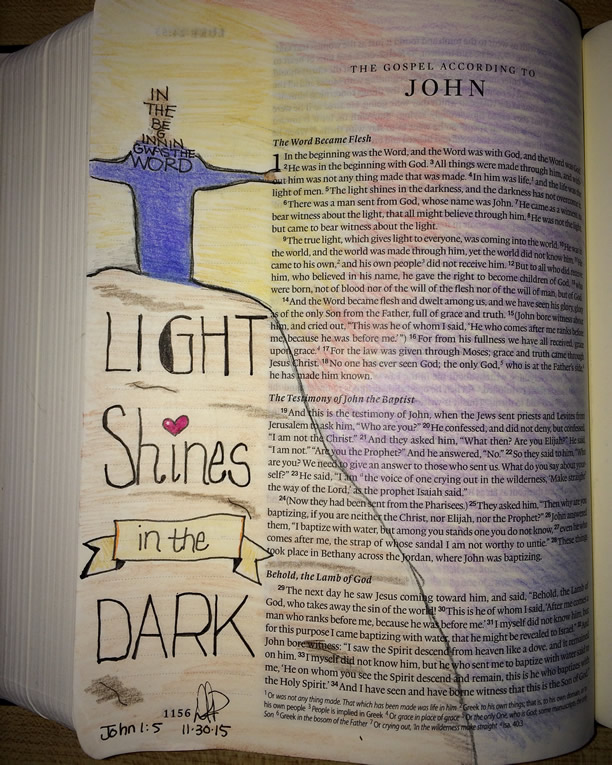 IN
THE
BE
G
INNIN
GWASTHE
WORD
LIGHT
Shines
in the
DARK
John 1:5 11-30-15
THE GOSPEL ACCORDING TO
JOHN
The Word Became Flesh
1 In the beginning was the Word, and the Word was with God, and the Word was
2He was in the beginning with God. 3All things were made through him, and with
out him was not any thing made that was made. 4In him was life,1 and the life was
light of men. 5The light shines in the darkness, and the darkness has not overcome
6There was a man sent from God, whose name was John. 7He came as a witness, to
bear witness about the light, that all might believe through him. 8He was not the
but came to bear witness about the light.
9The true light, which gives light to everyone, was coming into the world. 10He was in
the world, and the world was made through him, yet the world did not know him.
came to his own,2 and his own people3 did not receive him. 12But to all who did
him, who believed in his name, he gave the right to become children of God,
were born, not of blood nor of the will of the flesh nor of the will of man, but of God.
14And the Word became flesh and dwelt among us, and we have seen his glory, glory
as of the only Son from the Father, full of grace and truth. 15(John bore witness about
him, and cried out, "This was he of whom I said, 'He who comes after me ranks before
me, because he was before me.'") 16For from his fullness we have all received, grace
upon grace.4 17For the law was given through Moses; grace and truth came through
Jesus Christ. 18No one has ever seen God; the only God,5 who is at the Father's side,
he has made him known.
The Testimony of John the Baptist
19And this is the testimony of John, when the Jews sent priests and Levites from
Jerusalem to ask him, "Who are you?" 20He confessed, and did not deny, but confessed,
"I am not the Christ." 21And they asked him, "What then? Are you Elijah?" He said,
"I am not." "Are you the Prophet?" And he answered, "No." 22So they said to him, "Who
are you? We need to give an answer to those who sent us. What do you say about
self?" 23He said, "I am the voice of one crying out in the wilderness, 'Make straight
the way of the Lord,' as the prophet Isaiah said."
24(Now they had been sent from the Pharisees.) 25They asked him, "Then why are you
baptizing, if you are neither the Christ, nor Elijah, nor the Prophet?" 26John answered
them, "I baptize with water, but among you stands one you do not know, 27even he who
comes after me, the strap of whose sandal I am not worthy to untie." 28These things
took place in Bethany across the Jordan, where John was baptizing.
Behold, the Lamb of God
29The next day he saw Jesus coming toward him, and said, "Behold, the Lamb of
God, who takes away the sin of the world! 30This is he of whom I said, 'After me comes a
man who ranks before me, because he was before me.' 31I myself did not know him, but
for this purpose I came baptizing with water, that he might be revealed to Israel." 32And
John bore witness: "I saw the Spirit descend from heaven like a dove, and it remained
on him. 33I myself did not know him, but he who sent me to baptize with water said to
me, 'He on whom you see the Spirit descend and remain, this is he who baptizes with
the Holy Spirit.' 34And I have seen and have borne witness that this is the Son of God."
1 Or was not any thing made. That which has been made was life in him 2 Greek to his own things; that is, to his own domain, or to
his own people 3 People is implied in Greek 4 Or grace in place of grace 5 Or the only One, who is God; some manuscripts
Son 6 Greek in the bosom of the Father 7 Or crying out, 'In the wilderness make straight' 8 Isa. 40:3
1156